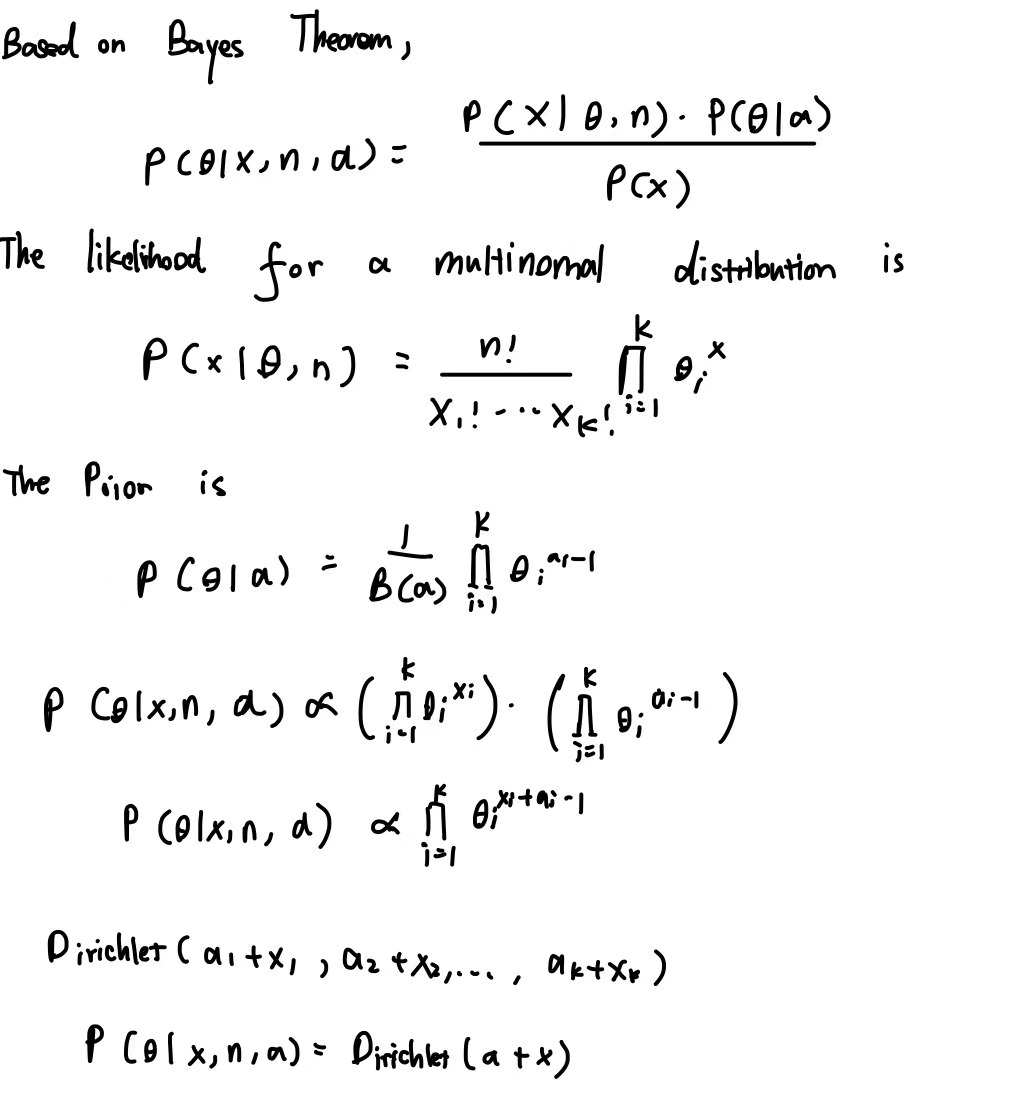 Based on Bayes Theorem,
P(θ|x,n,α) = P(X|θ,n)·P(θ|α) / P(x)
The likelihood for a multinomal distribution is
P(x|θ,n) = n! / X₁!⋯X_K! ∏_{i=1}^{k} θ_i^x
The Priior is
P(θ|a) = 1/B(a) ∏_{i=1}^{k} θ_i^{a_i-1}
P(θ|x,n,α) ∝ (∏_{i=1}^{k} θ_i^{x_i}) · (∏_{i=1}^{k} θ_i^{a_i-1})
P(θ|x,n,α) ∝ ∏_{i=1}^{k} θ_i^{x_i+a_i-1}
Dirichlet(a₁+x₁, a₂+x₂,..., a_k+x_k)
P(θ|x,n,a) = Dirichlet(a+x)